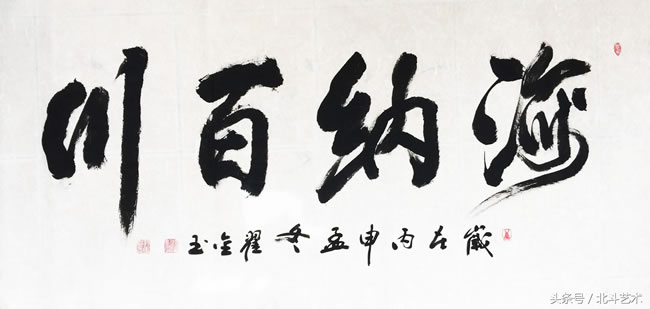 海纳百川
歲在丙申孟冬翟金玉
头条号 / 北斗艺术